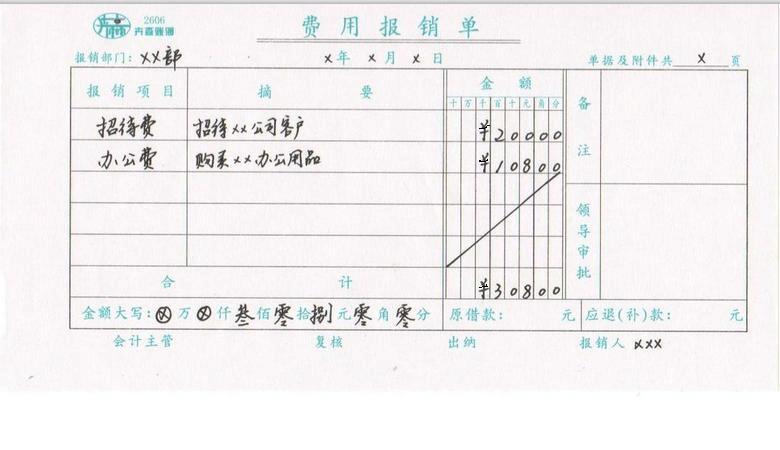 2606
卉森账簿
费用报销单
报销部门: ××部 ×年 ×月 ×日 单据及附件共 × 页
报销项目 摘要 金额 备注
十 万 千 百 十 元 角 分
招待费 招待××公司客户 ¥20000
办公费 购买××办公用品 ¥10800
领导审批
合计 ¥30800
金额大写: ⊗ 万 ⊗ 仟 叁 佰 零 拾 捌 元 零 角 零 分 原借款: 元 应退(补)款: 元
会计主管 复核 出纳 报销人 ×××